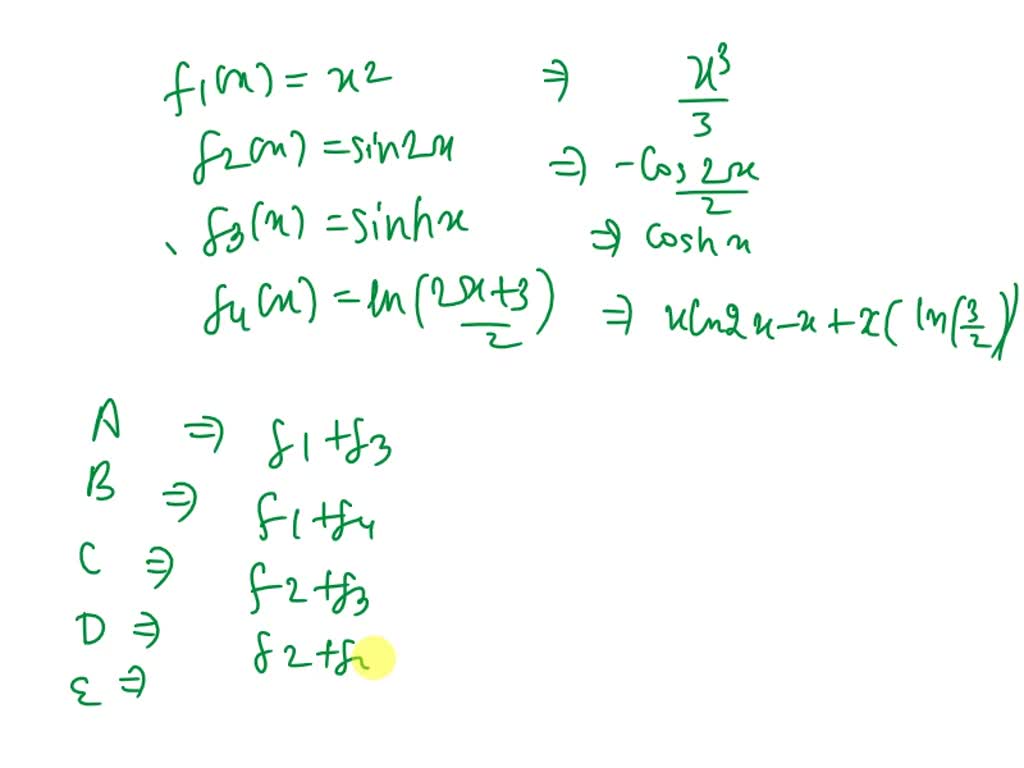 f1(x) = x2 ⇒ x³/3
f2(x) = sin2x ⇒ -cos 2x/2
f3(x) = sinhx ⇒ cosh x
f4(x) = ln(2x+3/2) ⇒ xln2x-x+x(ln(3/2))
A ⇒ f1+f3
B ⇒ f1+f4
C ⇒ f2+f3
D ⇒ f2+f
ε ⇒